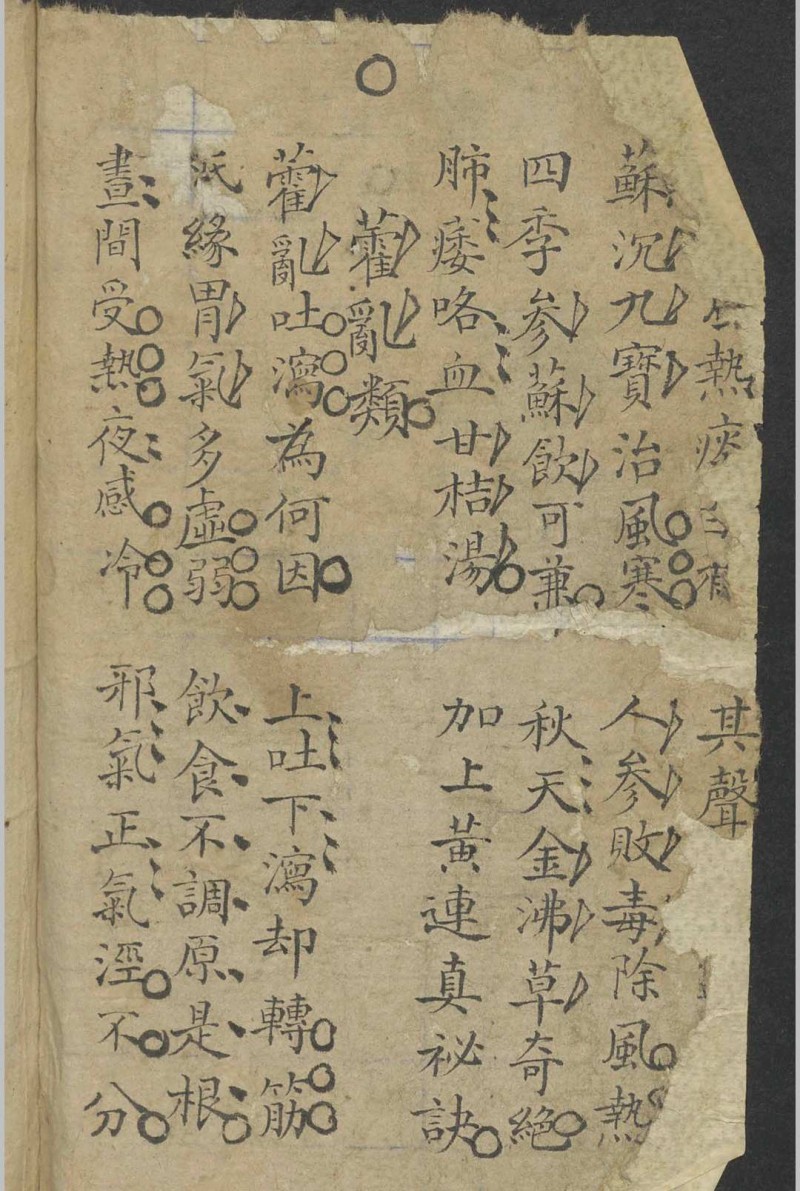 熱痰 其聲
蘇沉九寶治風寒 人參敗毒除風熱
四季參蘇飲可兼 秋天金沸草奇絕
肺痿咯血甘桔湯 加上黃連真祕訣
藿亂類
藿亂吐瀉為何因 上吐下瀉却轉筋
緣胃氣多虛弱 飲食不調原是根
晝間受熱夜感冷 邪氣正氣溼不分